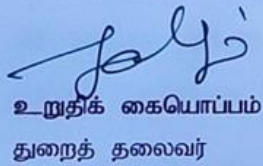 உறுதிக் கையொப்பம்
துறைத் தலைவர்